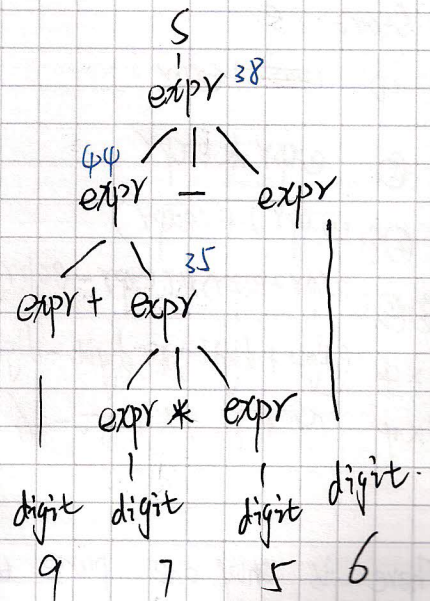 S
expr 38
44
expr - expr
35
expr + expr
expr * expr
digit digit digit digit.
9 7 5 6